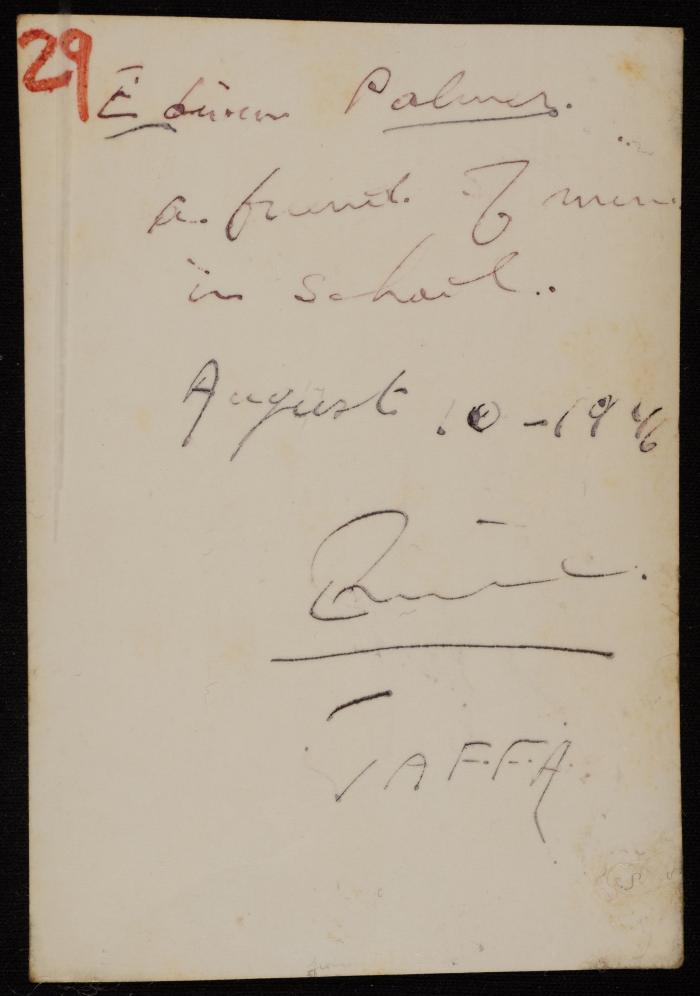 29
Edwin Palmer.
a friend of mine
in school..
August 10-1946
JAFFA